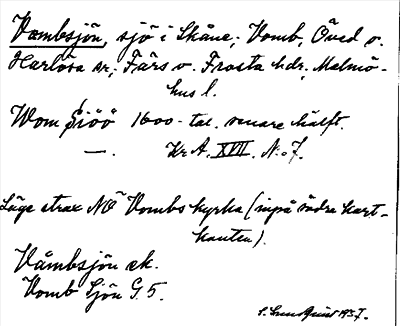 Vombsjön, sjö i Skåne; Vomb, Öved o.
Harlösa sn; Färs o. Frosta hdr, Malmö-
hus l.
Wom Siöö 1600-tal. senare hälft.
—. Kr.A. XVII. N:o 7.
Läge strax NÖ Vombs kyrka (inpå södra kart-
kanten).
Våmbsjön ek.
Vomb Sjön G. 5.
S. Lundquist 1937.